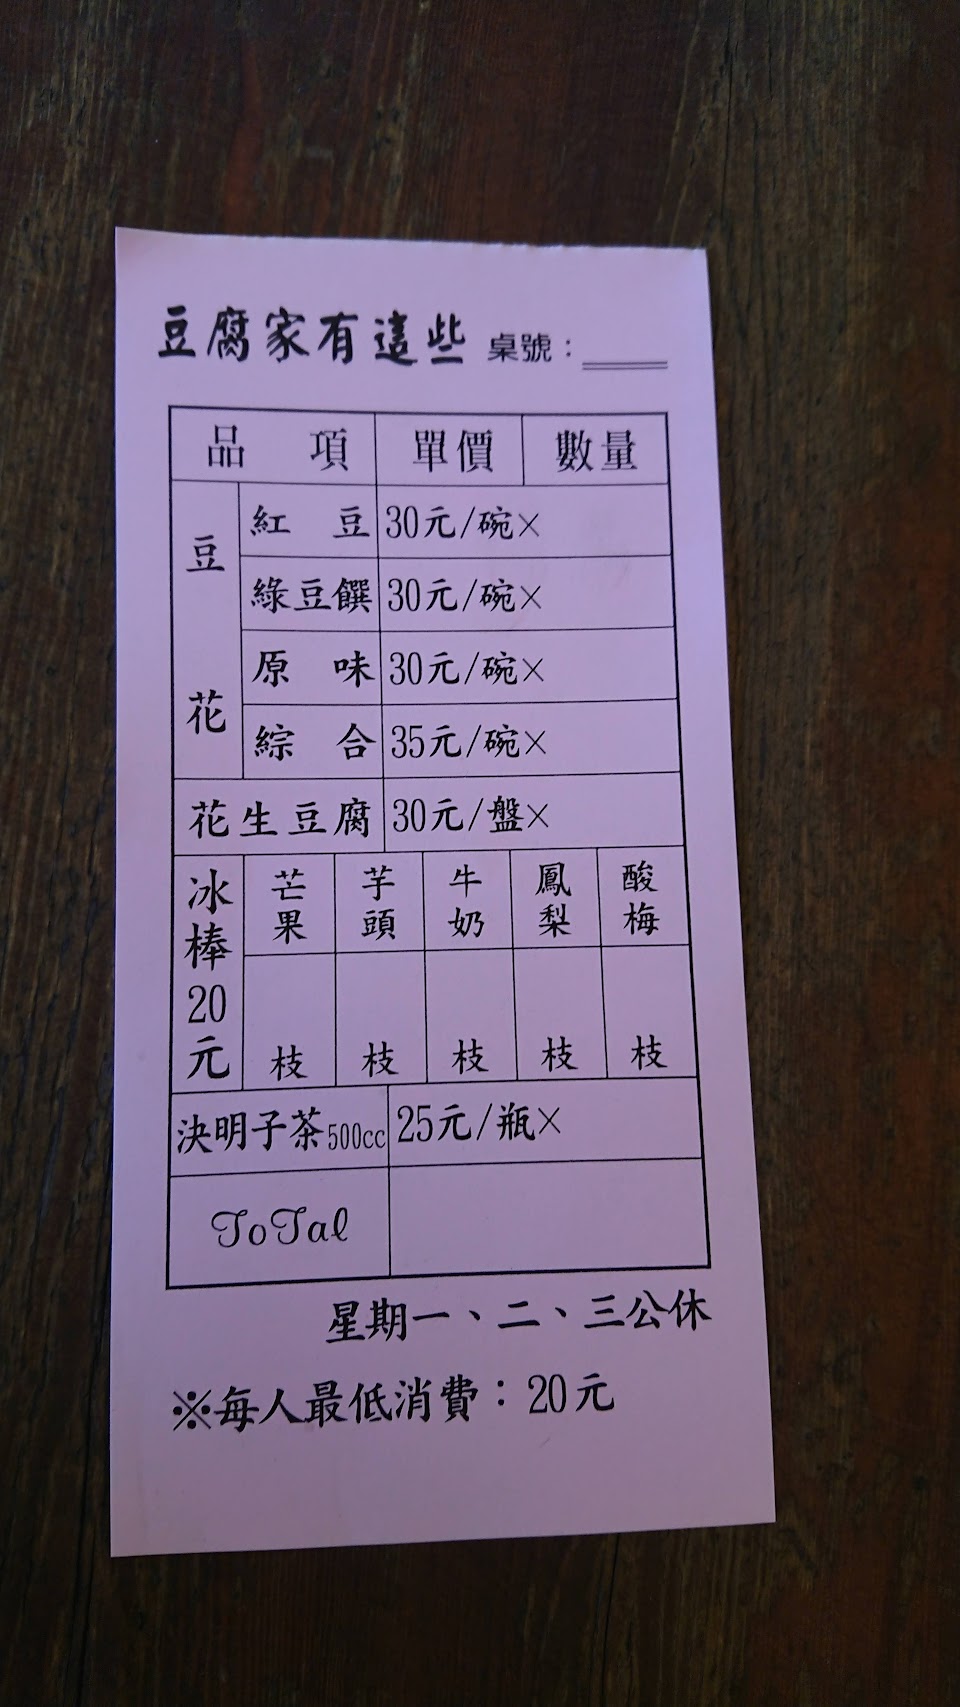 豆腐家有這些 桌號：
品項 單價 數量
豆花
紅豆 30元/碗×
綠豆饌 30元/碗×
原味 30元/碗×
綜合 35元/碗×
花生豆腐 30元/盤×
冰棒20元
芒果 芋頭 牛奶 鳳梨 酸梅
枝 枝 枝 枝 枝
決明子茶500cc 25元/瓶×
ToTal
星期一、二、三公休
※每人最低消費：20元